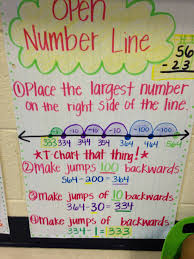 Open
Number Line
56
-23
① Place the largest number
on the right side of the line.
-1 -10 -10 -10 -100 -100
333 334 344 354 364 464 564
*T Chart that thing!*
② Make jumps 100 backwards
564-200=364
③ Make jumps of 10 backwards
364-30=334
④ Make jumps of backwards
334-1=333